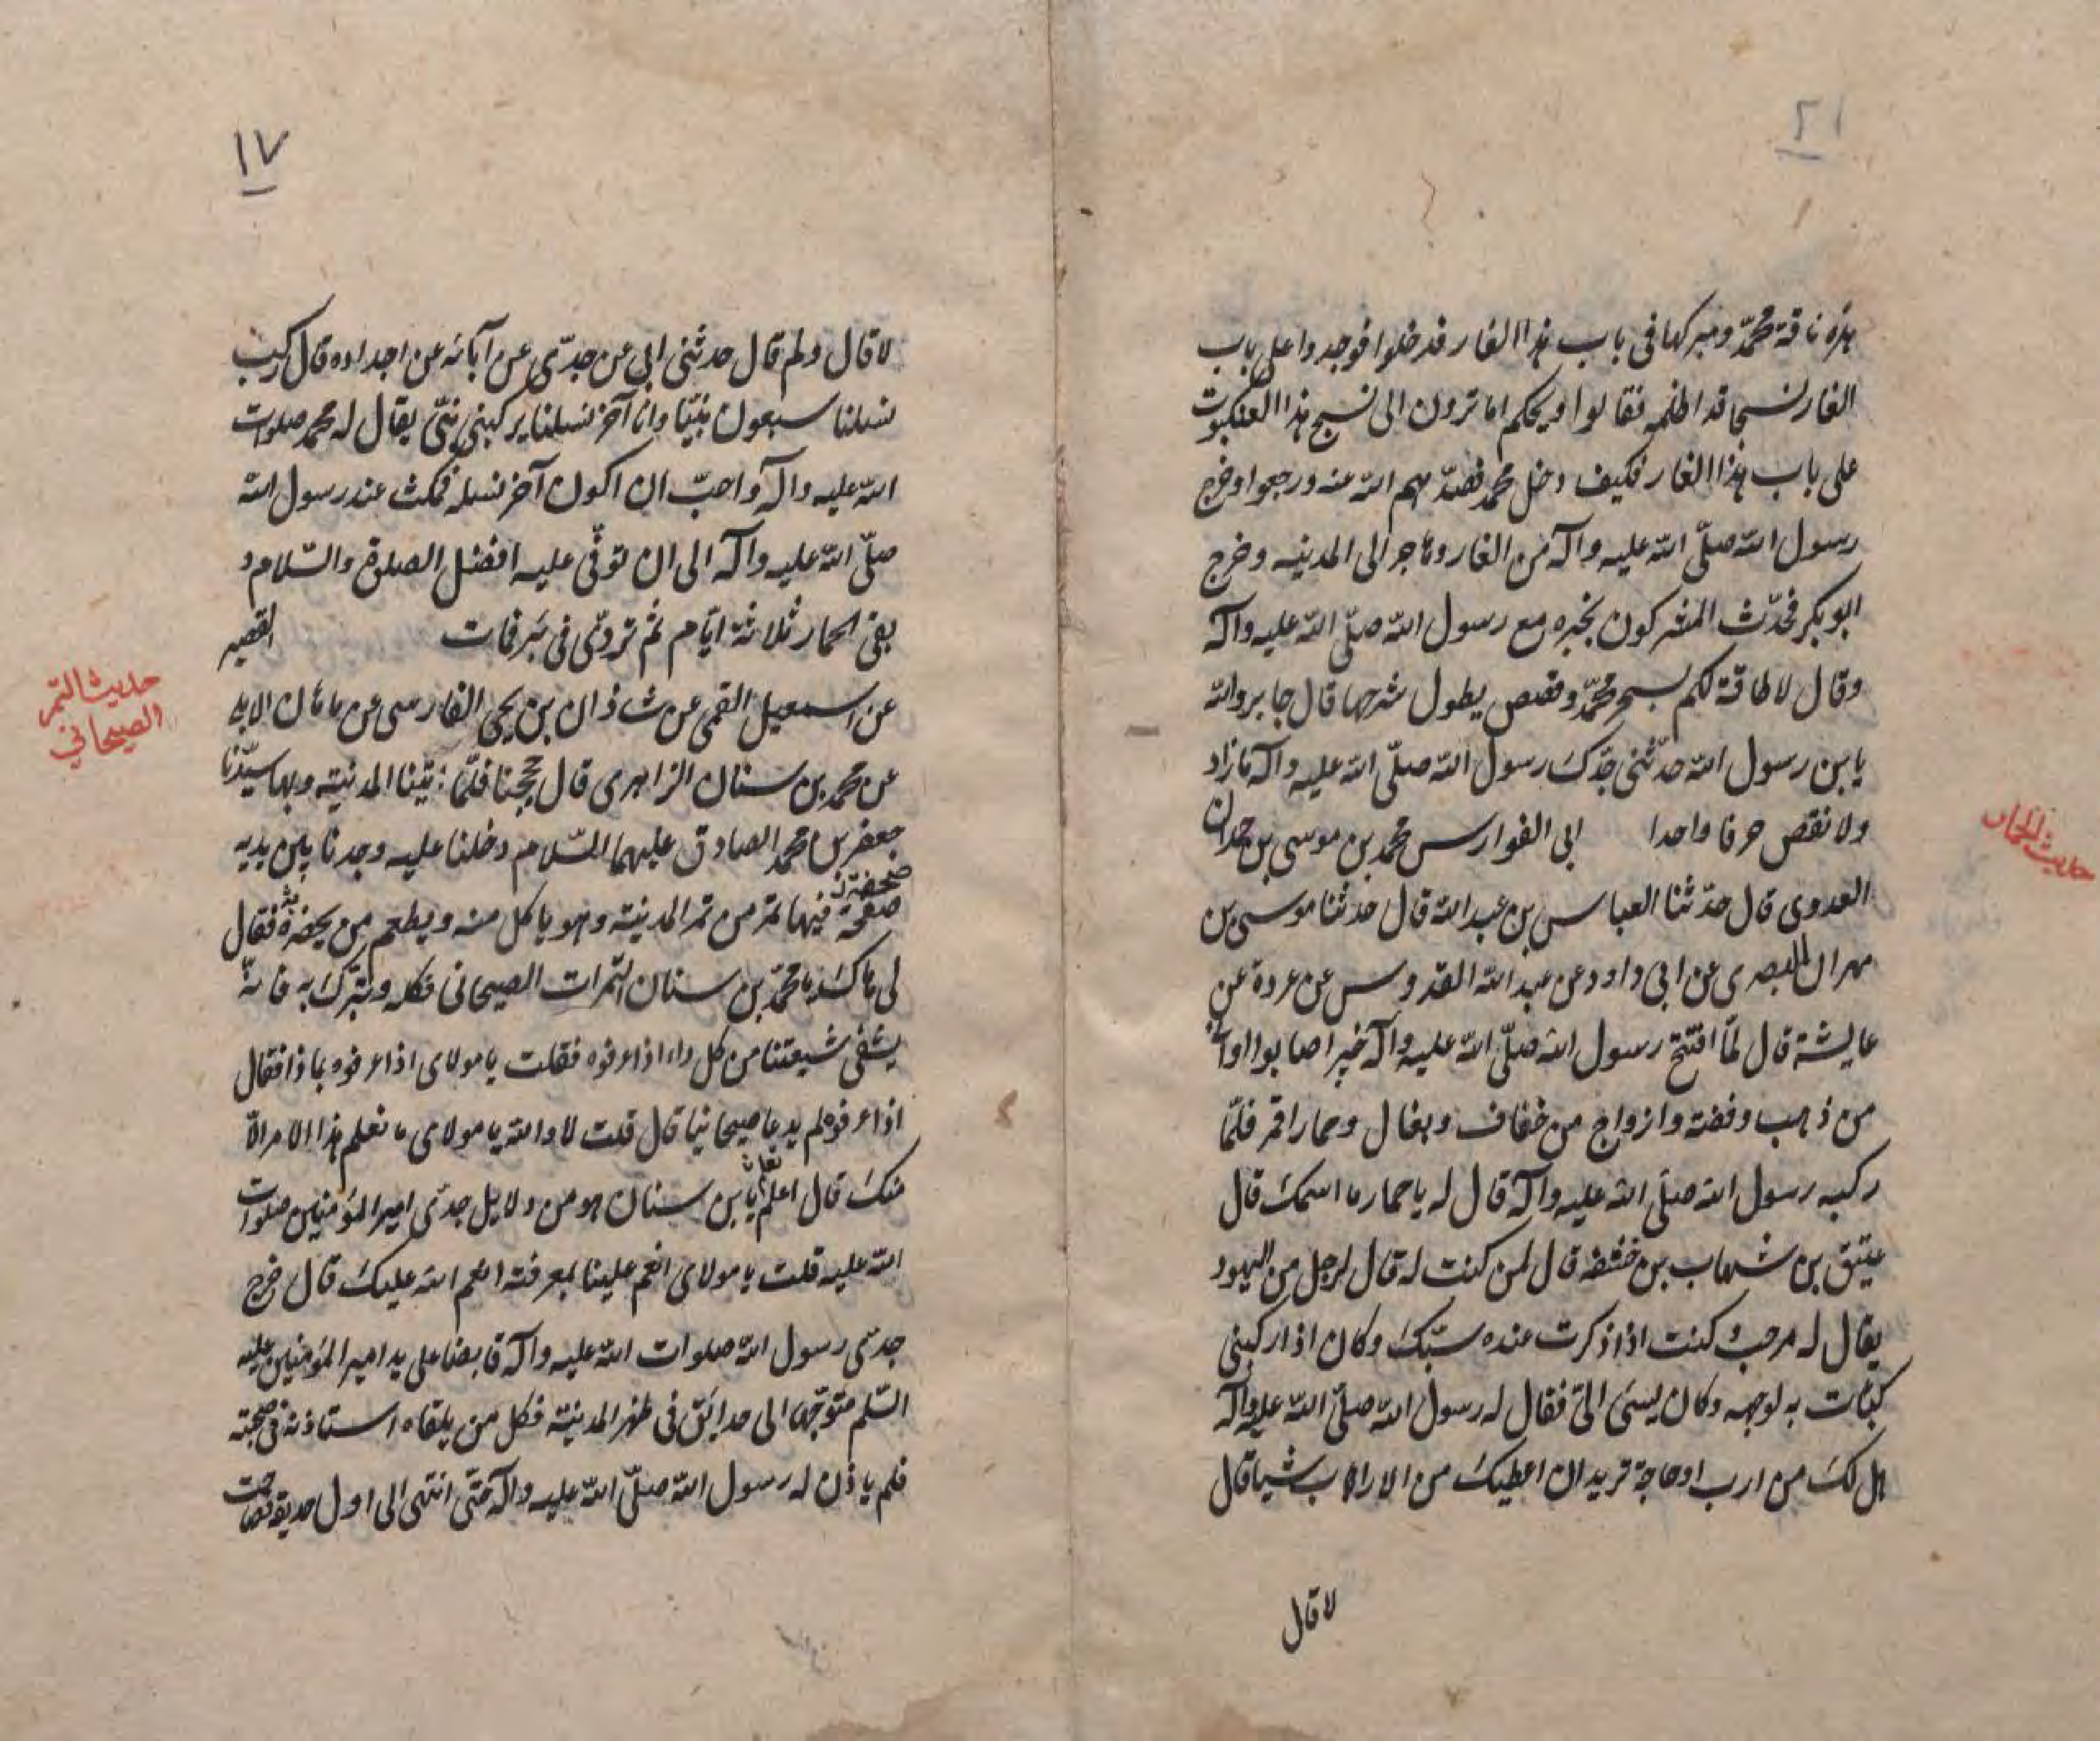 ٢١
هذه ناقة محمّد ومبركها فى باب هذا الغار فدخلوا فوجدوا على باب
الغار نسجا قد اظلمه فقالوا ويحكم اما ترون الى نسج هذا العنكبوت
على باب هذا الغار فكيف دخل محمد فصدّهم الله عنه ورجعوا وخرج
رسول الله صلّى الله عليه وآله من الغار وهاجر الى المدينه وخرج
ابو بكر فحدّث المشركون بخبره مع رسول الله صلّى الله عليه وآله
وقال لا طاقة لكم بسحر محمّد وقصص يطول شرحها قال جابر والله
يابن رسول الله حدّثنى جدّك رسول الله صلّى الله عليه وآله مازاد
ولا نقص حرفا واحدا ابى الفوارس محمد بن موسى بن حمدان
العدوى قال حدّثنا العباس بن عبد الله قال حدثنا موسى بن
مهران البصرى عن ابى داود عن عبد الله القدوس عن عروة عن
عايشة قال لمّا افتتح رسول الله صلّى الله عليه وآله خيبر اصابوا اوانى
من ذهب وفضة وازواج من خفاف وبغال وحمار اقمر فلمّا
ركبه رسول الله صلّى الله عليه وآله قال له يا حمار ما اسمك قال
عتيق بن شهاب بن قال لمن كنت له قال لرجل من اليهود
يقال له مرحب وكنت اذا ذكرت عنده سبّك وكان اذا ركبنى
كبات به لوجهه وكان يسئ الىّ فقال له رسول الله صلّى الله عليه وآله
هل لك من ارب او حاجة تريد ان اعطيك من الاراب شيا قال
لا قال
حديث الحمار
١٧
لا قال ولم قال حدثنى ابى عن جدّى عن آبائه عن اجداده قال ركب
نسلنا سبعون نبيّا وانا آخر نسلنا يركبنى نبىّ يقال له محمد صلوات
الله عليه وآله واحبّ ان اكون آخر نسله فمكث عند رسول الله
صلّى الله عليه وآله الى ان توفّى عليه افضل الصلوة والسّلام و
بقى الحمار ثلاثة ايّام ثم تردّى فى بئر فمات القصير
عن اسمعيل القمى عن شاذان بن يحيى الفارسى عن ماهان الابلى
عن محمد بن سنان الزاهرى قال حججنا فلمّا اتينا المدينة وبها سيّدنا
جعفر بن محمد الصادق عليهما السّلام دخلنا عليه وجدنا بين يديه
صحفة فيها تمر من تمر المدينة وهو ياكل منه ويطعم من بحضرته فقال
لى هاك يا محمّد بن سنان التمرات الصيحانى فكله وتبرّك به فانّه
يشفى شيعتنا من كل داء اذا عرفوه فقلت يا مولاى اذا عرفوه بماذا فقال
اذا عرفوه لم يدعا صيحانيا قال قلت لا والله يا مولاى ما نعلم هذا الامر الّا
منك قال اعلم يابن سنان هو من دلايل جدّى امير المؤمنين صلوات
الله عليه قلت يا مولاى انعم علينا بمعرفته انعم الله عليك قال خرج
جدى رسول الله صلوات الله عليه وآله قابضا على يد امير المؤمنين عليه
السّلم متوجّها الى حدايق فى ظهر المدينة فكل من يلقاه استاذنه فى صحبته
فلم ياذن له رسول الله صلّى الله عليه وآله حتّى انتهى الى اول حديقة فصاحت
حديث التمر
الصيحاني